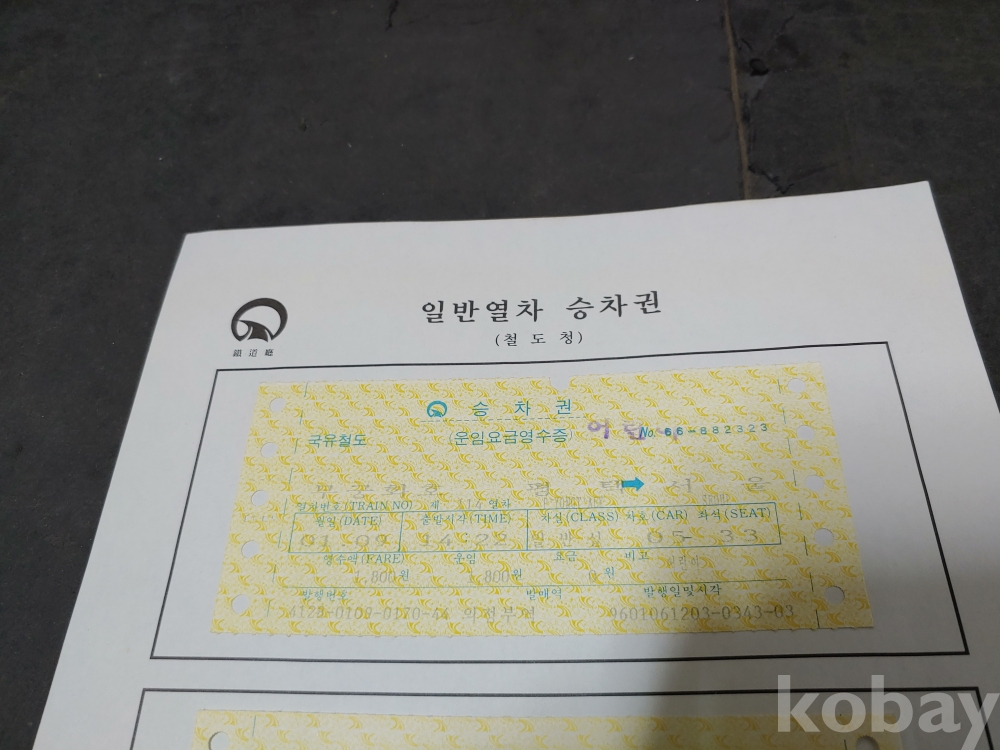 일반열차 승차권
(철 도 청)
鐵 道 廳
승 차 권
국유철도 (운임요금영수증) 어른 No. 66-882323
무궁화호 평 택 서 울
열차번호(TRAIN NO) 제 열차
월일(DATE) 출발시각(TIME) 차실(CLASS) 차호(CAR) 좌석(SEAT)
01 09 14-22 일 반 실 05- 33
영수액(FARE) 운임 요금 비고
1,800원 1,800원 0원
발행번호 발매역 발행일및시각
4122-0109-0170-44 의정부역 9601061203-0343-03
kobay